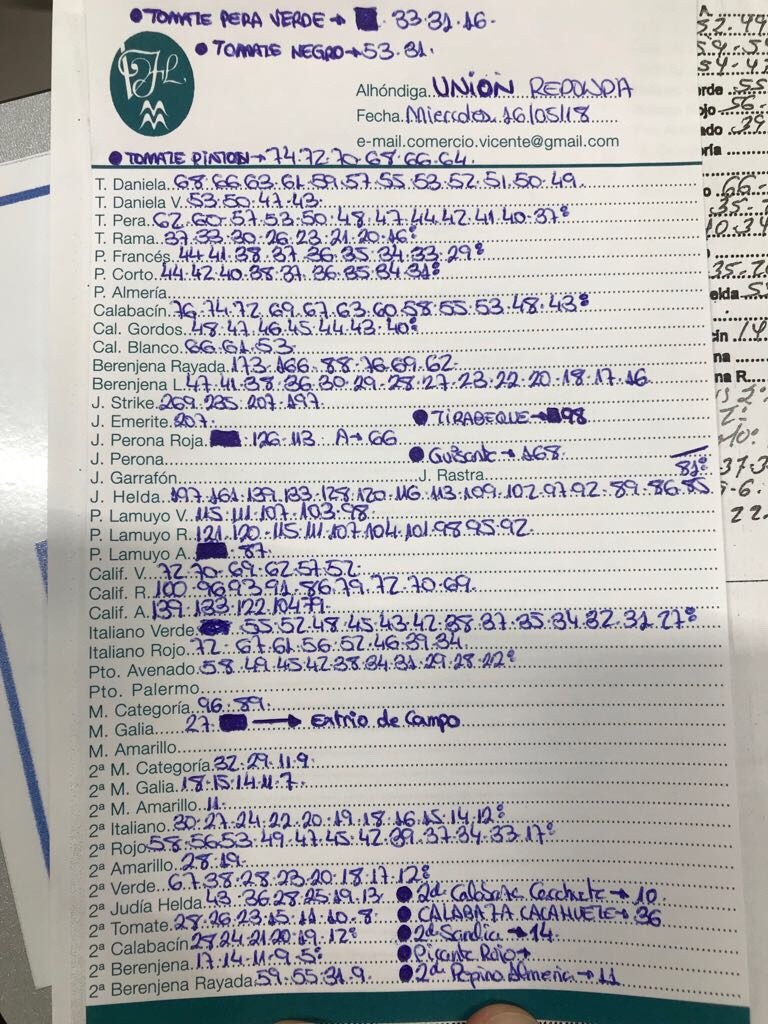 • TOMATE PERA VERDE → 33.31.16.
• TOMATE NEGRO → 53.31.
Alhóndiga UNION REDONDA
Fecha Miercoles 16/05/18
e-mail.comercio.vicente@gmail.com
• TOMATE PINTON → 74.72.70.68.66.64.
T. Daniela 68.66.63.61.59.57.55.53.52.51.50.49.
T. Daniela V. 53.50.47.43.
T. Pera 62.60.57.53.50.48.47.44.42.41.40.37º
T. Rama 37.33.30.26.23.21.20.16º
P. Francés 44.41.38.37.36.35.34.33.29º
P. Corto 44.42.40.38.37.36.35.34.31º
P. Almería
Calabacín 76.74.72.69.67.63.60.58.55.53.48.43º
Cal. Gordos 48.47.46.45.44.43.40º
Cal. Blanco 66.61.53.
Berenjena Rayada 173.166.88.76.69.62.
Berenjena L. 47.41.38.36.30.29.28.27.23.22.20.18.17.16
J. Strike 269.235.207.197.
J. Emerite 207. • TIRABEQUE → 98
J. Perona Roja 126.113 A → 66
J. Perona • Guisante → 168
J. Garrafón J. Rastra 81º
J. Helda 197.161.139.133.128.120.116.113.109.102.97.92.89.86.85
P. Lamuyo V. 115.111.107.103.98
P. Lamuyo R. 121.120.115.111.107.104.101.98.95.92.
P. Lamuyo A. 87
Calif. V. 72.70.69.62.57.52.
Calif. R. 100.96.93.91.86.79.72.70.69.
Calif. A. 139.133.122.104.79.
Italiano Verde 55.52.48.45.43.42.38.37.35.34.32.31.27º
Italiano Rojo 72.67.61.56.52.46.39.34.
Pto. Avenado 58.49.45.42.38.34.31.29.28.22º
Pto. Palermo
M. Categoría 96.89.
M. Galia 27. → Extrio de Campo
M. Amarillo
2ª M. Categoría 32.29.11.9.
2ª M. Galia 18.15.14.11.7.
2ª M. Amarillo 11.
2ª Italiano 30.27.24.22.20.19.18.16.15.14.12º
2ª Rojo 58.56.53.49.47.45.42.39.37.34.33.17º
2ª Amarillo 28.19.
2ª Verde 67.38.28.23.20.18.17.12º
2ª Judía Helda 43.36.28.25.19.13 • 2ª Calabaza Cacahuete → 10
2ª Tomate 28.26.23.15.11.10.8. • CALABAZA CACAHUETE → 36
2ª Calabacín 28.24.21.20.19.12º • 2ª Sandia → 14
2ª Berenjena 17.14.11.9.5º • Picante Rojo →
2ª Berenjena Rayada 59.55.31.9. • 2ª Pepino Almeria → 11